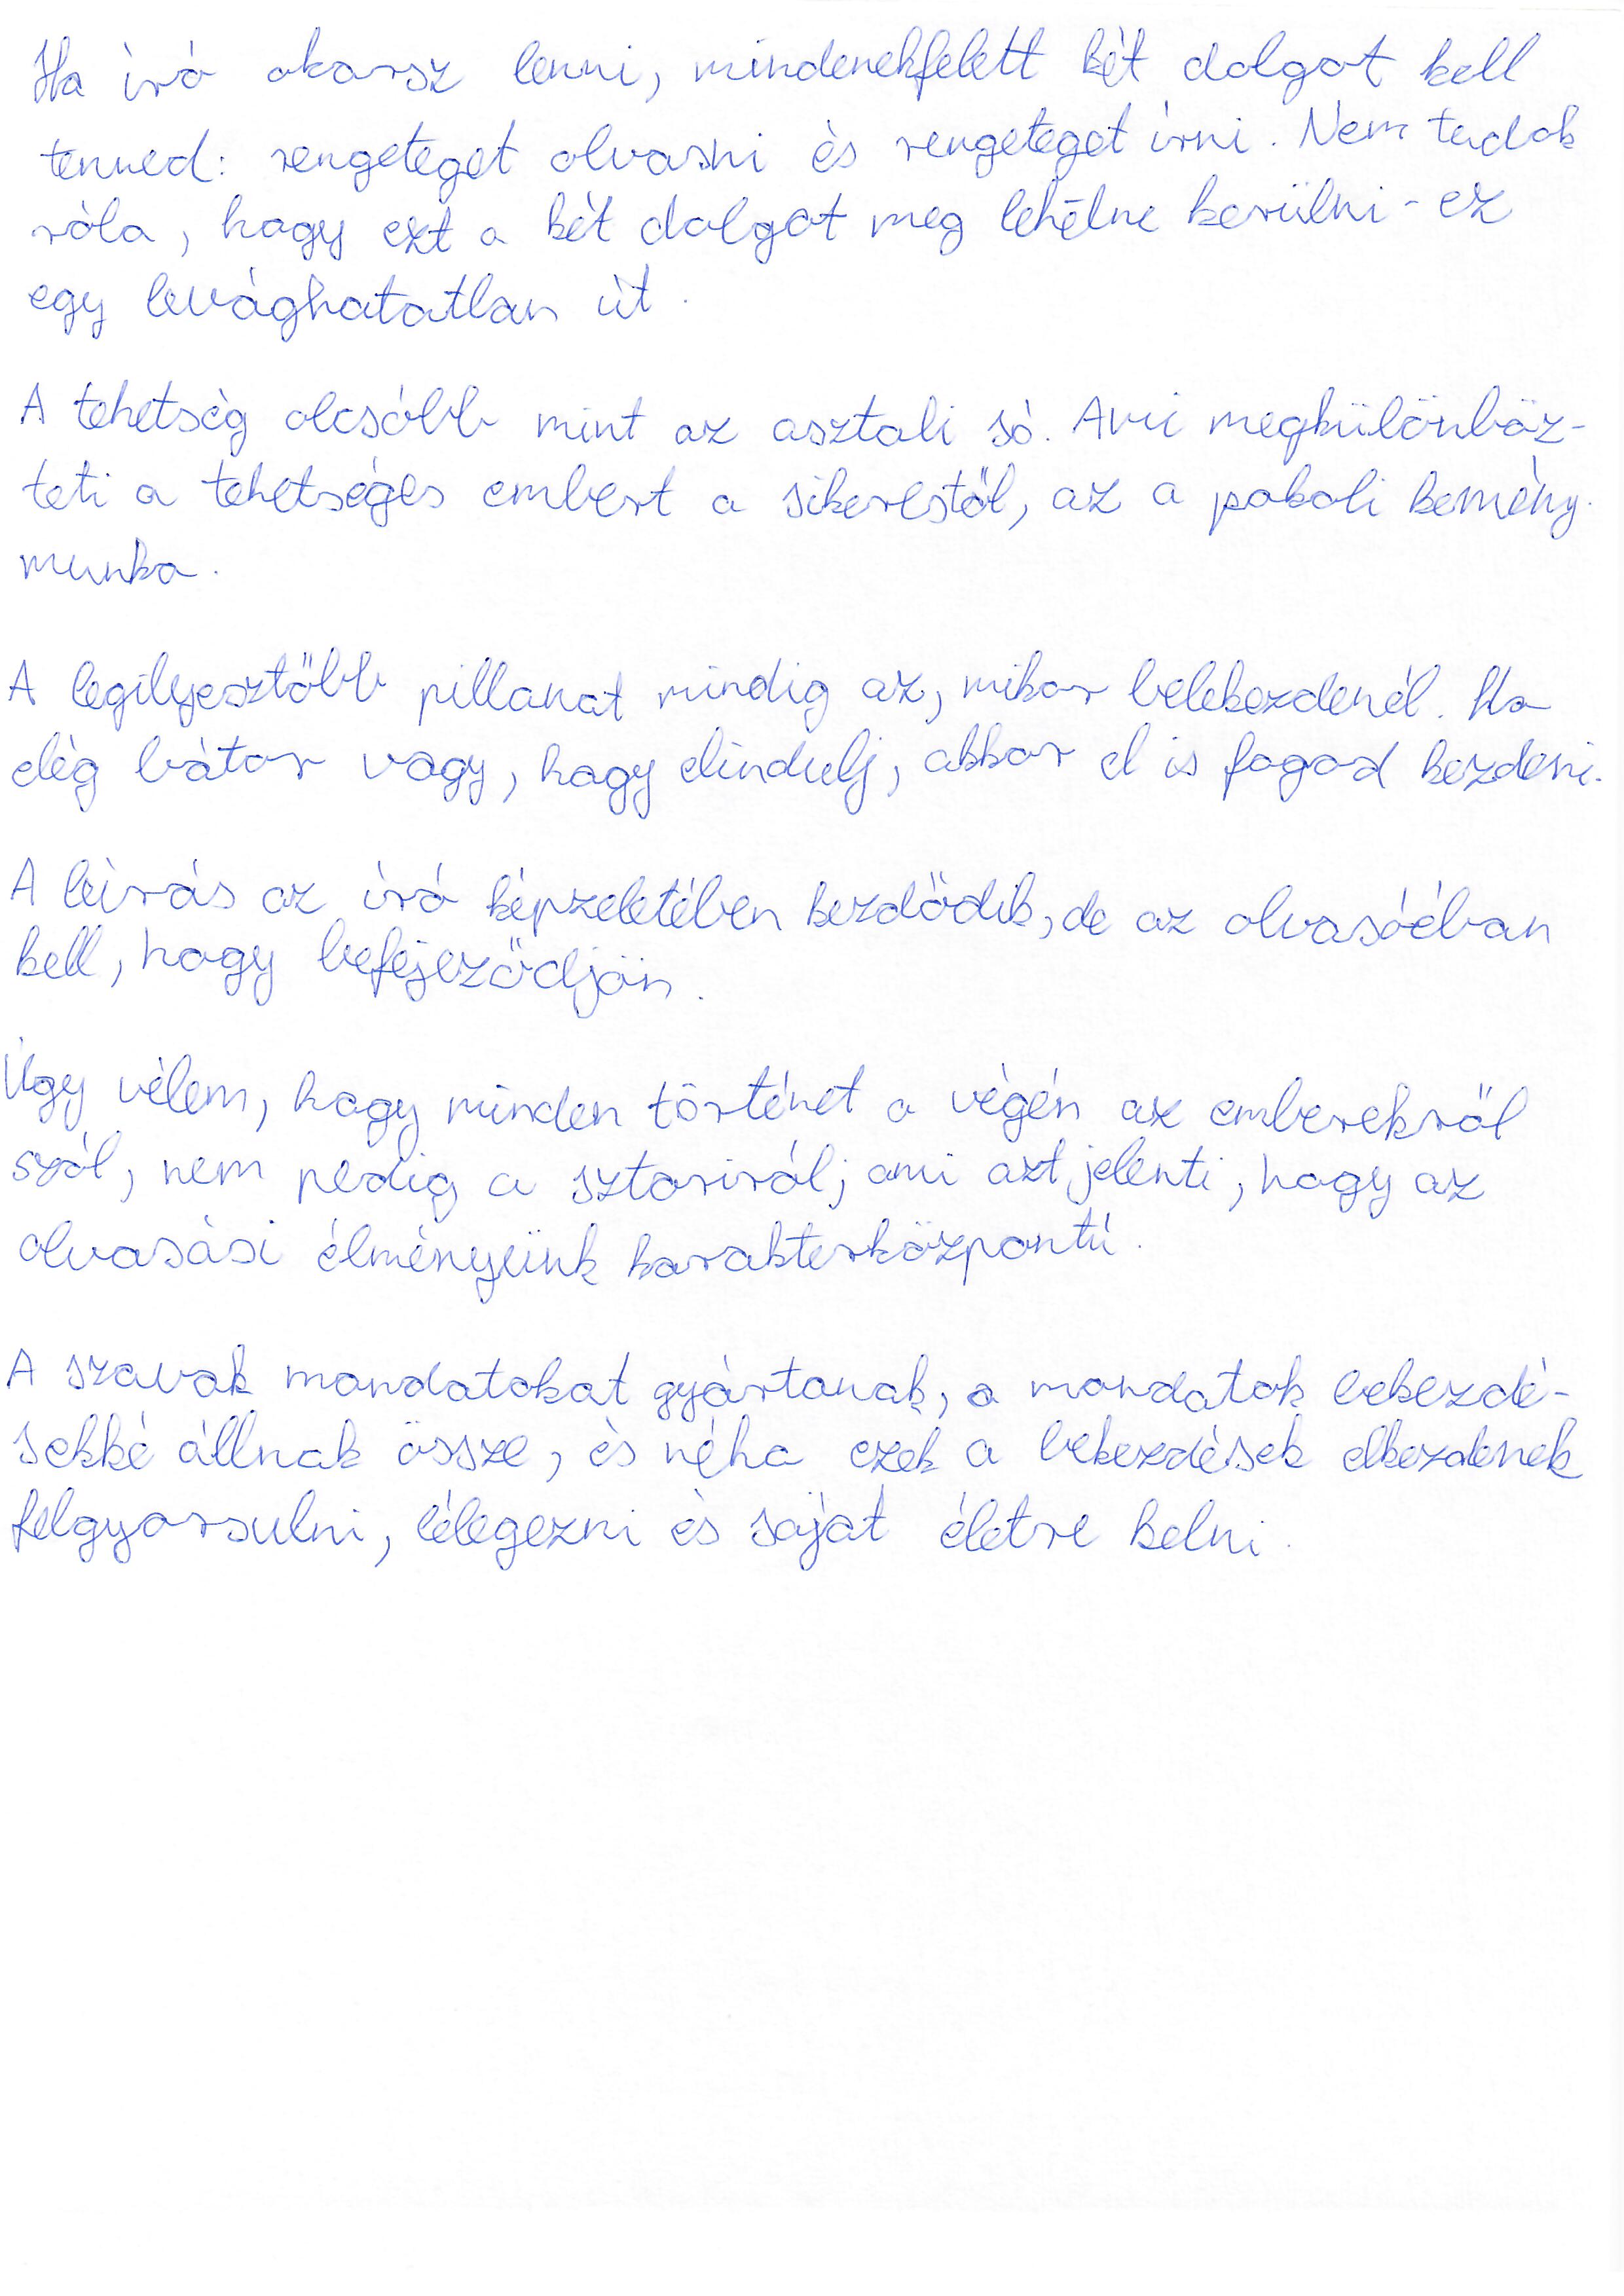 Ha író akarsz lenni, mindenekfelett két dolgot kell
tenned: rengeteget olvasni és rengeteget írni. Nem tudok
róla, hogy ezt a két dolgot meg lehetne kerülni - ez
egy levághatatlan út.
A tehetség olcsóbb mint az asztali só. Ami megkülönböz-
teti a tehetséges embert a sikerestől, az a pokoli kemény
munka.
A legilyesztőbb pillanat mindig az, mikor belekezdenél. Ha
elég bátor vagy, hogy elindulj, akkor el is fogod kezdeni.
A leírás az író képzeletében kezdődik, de az olvasóéban
kell, hogy befejeződjön.
Úgy vélem, hogy minden történet a végén az emberekről
szól, nem pedig a sztoriról; ami azt jelenti, hogy az
olvasási élményeink karakterközpontú.
A szavak mondatokat gyártanak, a mondatok bekezdé-
sekké állnak össze, és néha ezek a bekezdések elkezdenek
felgyorsulni, lélegezni és saját életre kelni.